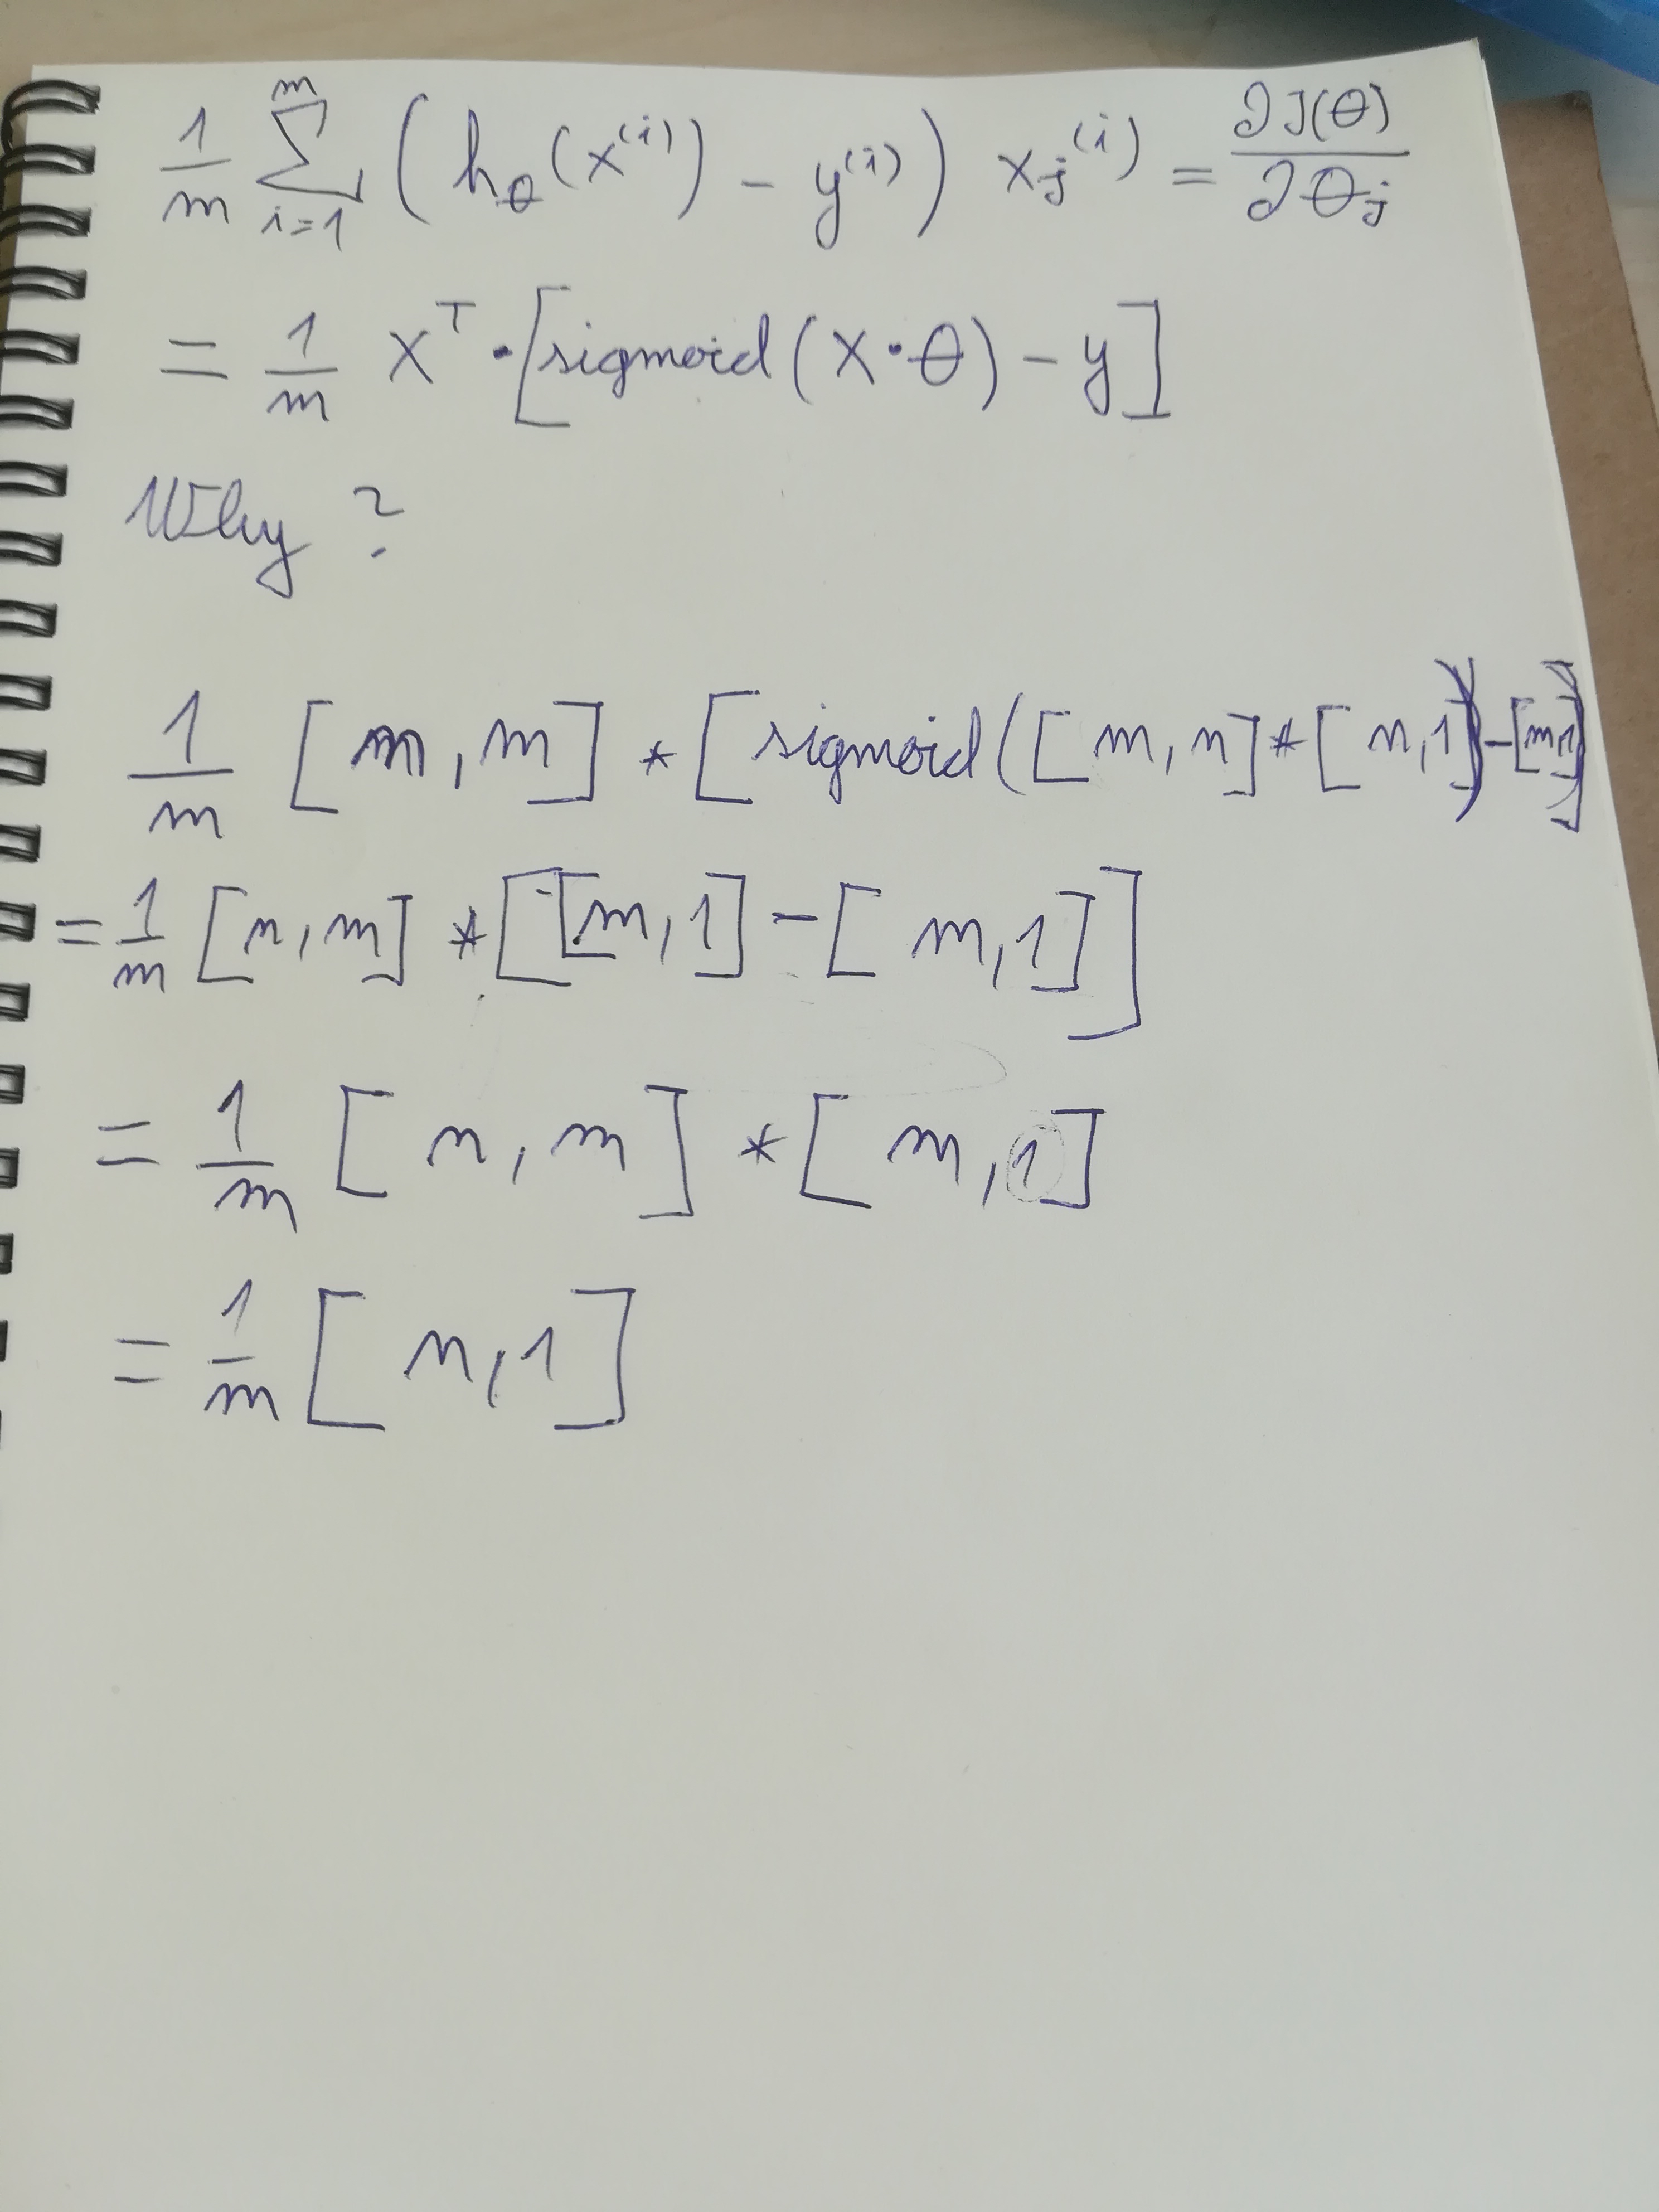 1/m Σ_{i=1}^{m} (h_θ(x^{(i)}) - y^{(i)}) x_j^{(i)} = ∂J(θ)/∂θ_j
= 1/m X^T · [sigmoid(X·θ) - y]
Why ?
1/m [n, m] * [sigmoid([m, n] * [n, 1]) - [m, 1]]
= 1/m [n, m] * [[m, 1] - [m, 1]]
= 1/m [n, m] * [m, 1]
= 1/m [n, 1]